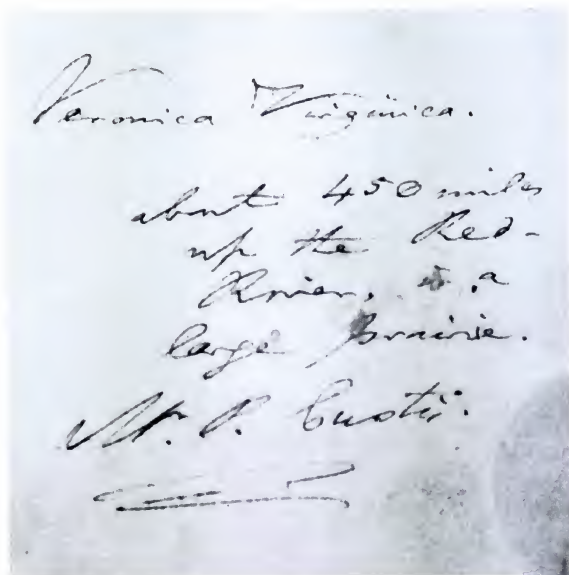 Veronica Virginica.
about 450 miles
up the Red-
River, a
large Prairie.
Mr. P. Custis.